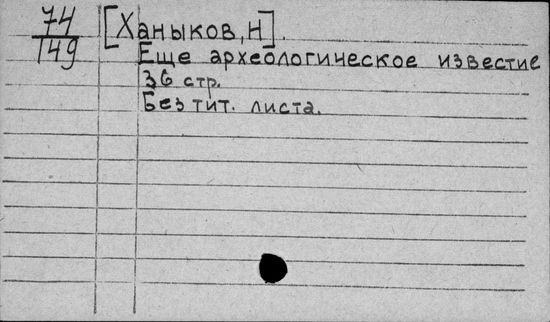 74
149
[Ханыков, Н].
Еще археологическое известие
36 стр.
Без тит. листа.